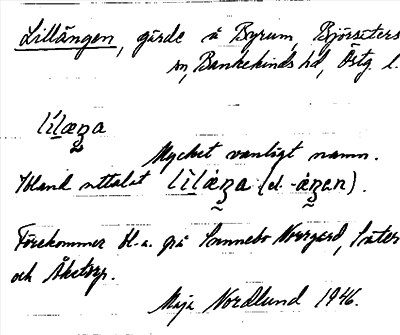 Lillängen, gärde å Byrum, Björsäters
sn, Bankekinds hd, Östg. l.
Mycket vanligt namn.
Ibland uttalat (el. ).
Förekommer bl.a. på Sonnebo Norrgård, Säter
och Åketorp.
Maja Nordlund 1946.